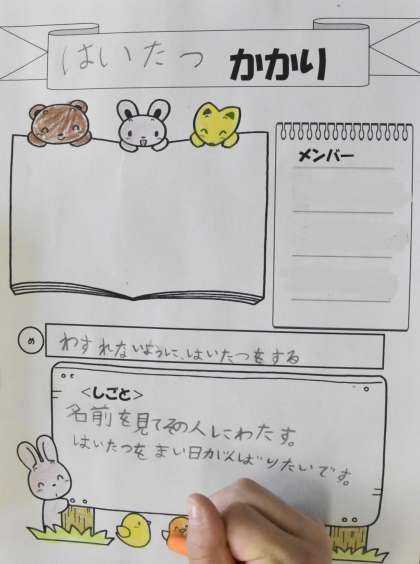 はいたつ かかり
メンバー
め
わすれないように、はいたつをする
<しごと>
名前を見てその人にわたす。
はいたつをまい日がんばりたいです。